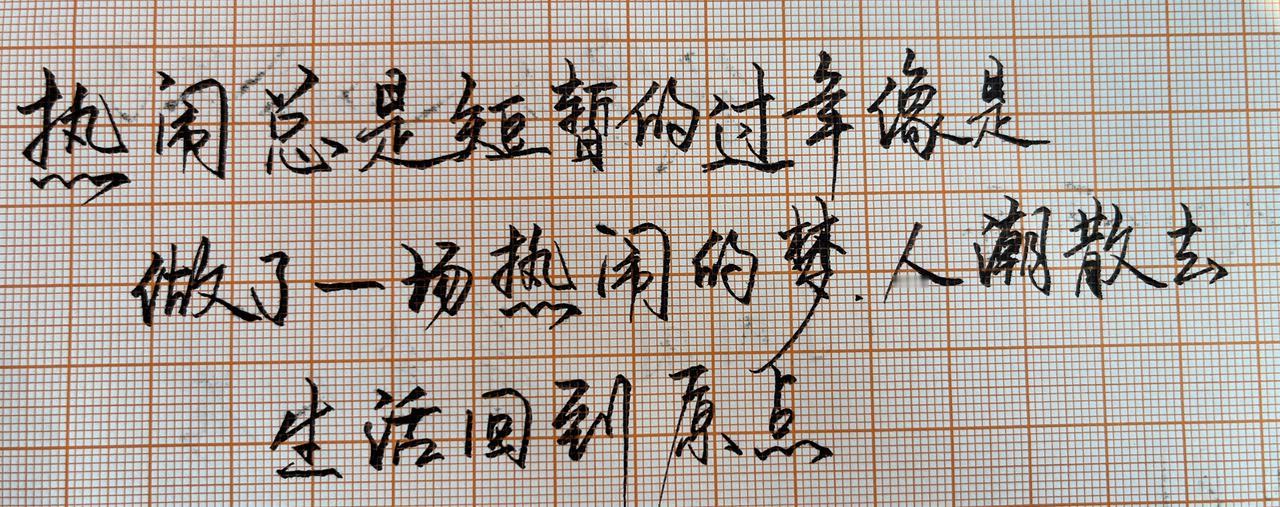 热闹总是短暂的过年像是
做了一场热闹的梦.人潮散去
生活回到原点